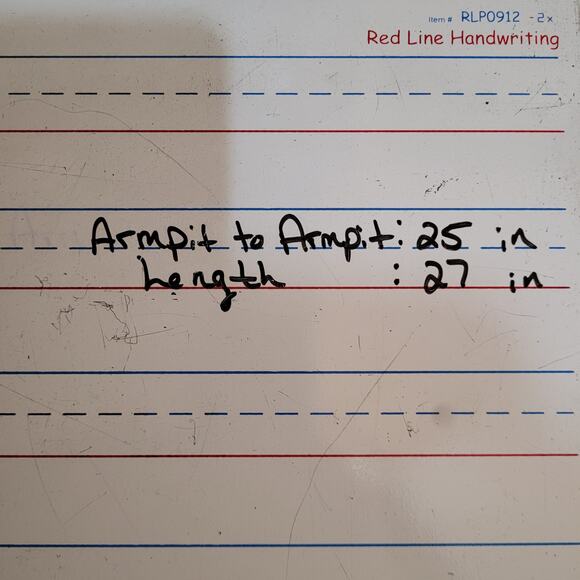 Item # RLP0912 -2x
Red Line Handwriting
Armpit to Armpit: 25 in
Length : 27 in